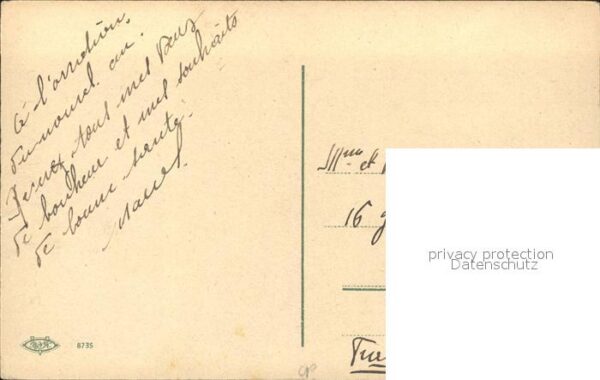 à l'occasion
du nouvel an.
Recevez tous mes vœux
de bonheur et mes souhaits
de bonne santé.
Marcel
Mme et
16
privacy protection
Datenschutz
8735